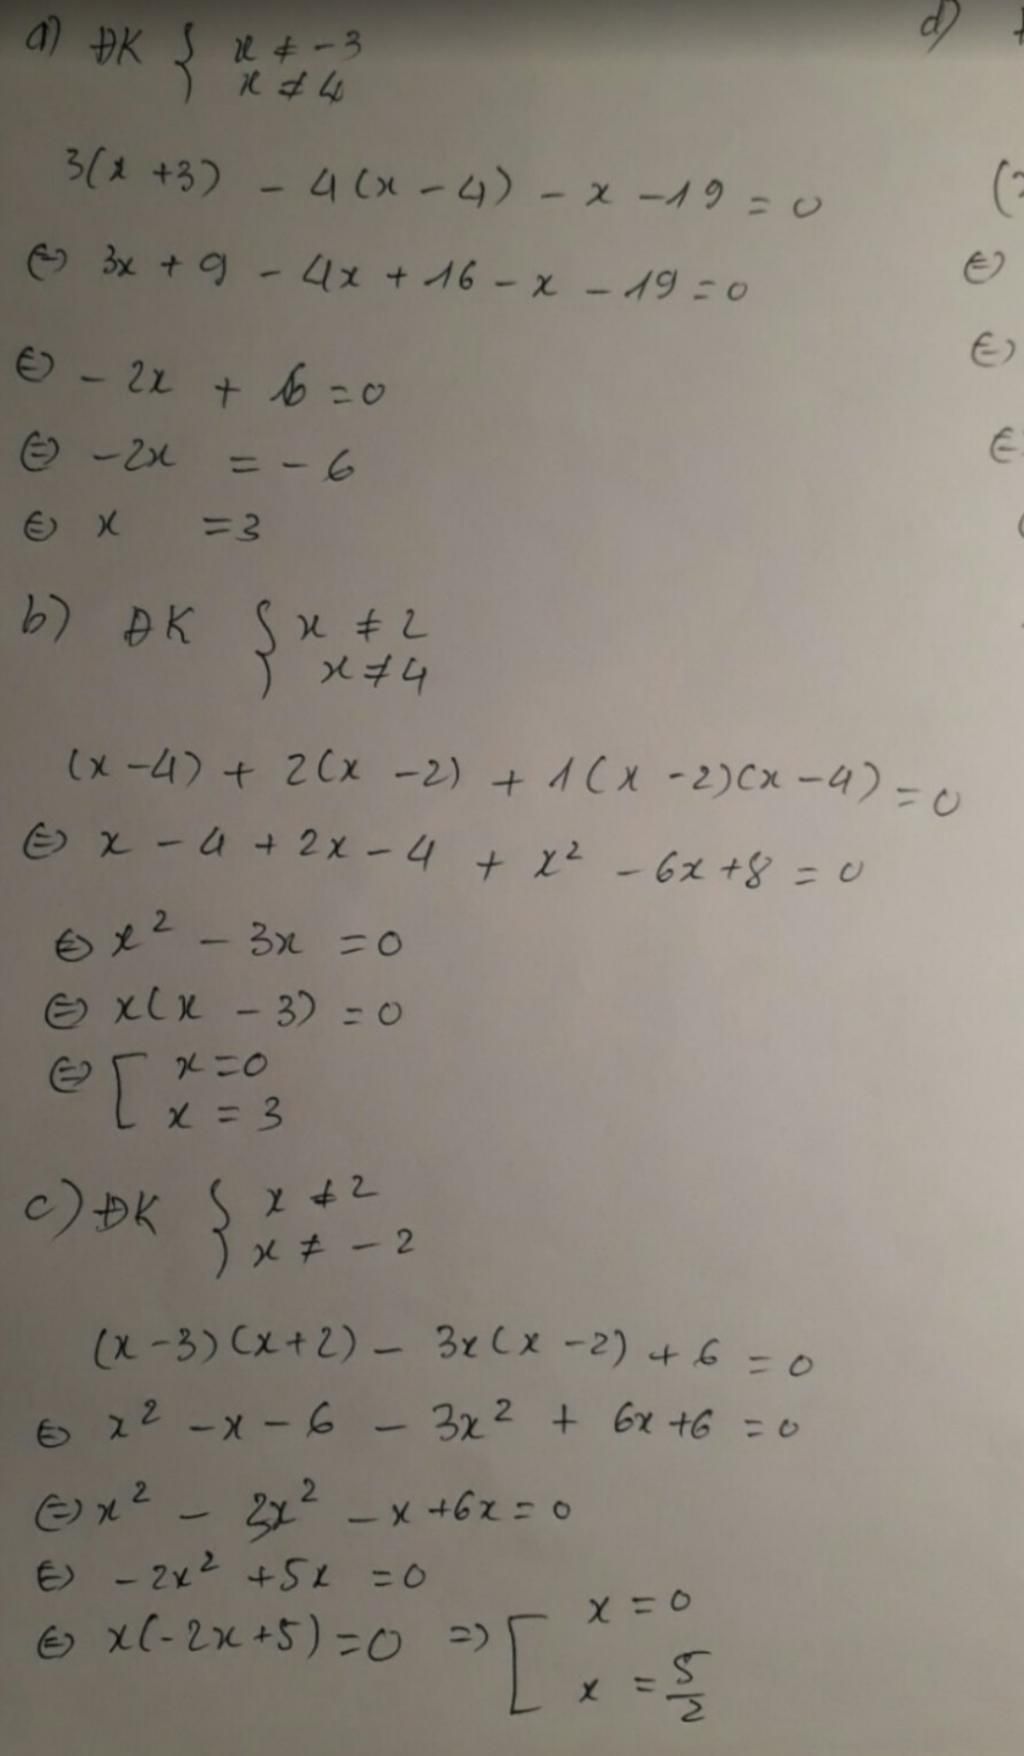 a) ĐK { x ≠ -3
x ≠ 4
3(x +3) - 4(x - 4) - x - 19 = 0
⇔ 3x + 9 - 4x + 16 - x - 19 = 0
⇔ - 2x + 6 = 0
⇔ -2x = - 6
⇔ x = 3
b) ĐK { x ≠ 2
x ≠ 4
(x - 4) + 2(x - 2) + 1(x - 2)(x - 4) = 0
⇔ x - 4 + 2x - 4 + x² - 6x + 8 = 0
⇔ x² - 3x = 0
⇔ x(x - 3) = 0
⇔ [ x = 0
x = 3
c) ĐK { x ≠ 2
x ≠ - 2
(x - 3)(x + 2) - 3x(x - 2) + 6 = 0
⇔ x² - x - 6 - 3x² + 6x + 6 = 0
⇔ x² - 3x² - x + 6x = 0
⇔ - 2x² + 5x = 0
⇔ x(-2x + 5) = 0 => [ x = 0
x = 5/2
d)
(
⇔
⇔